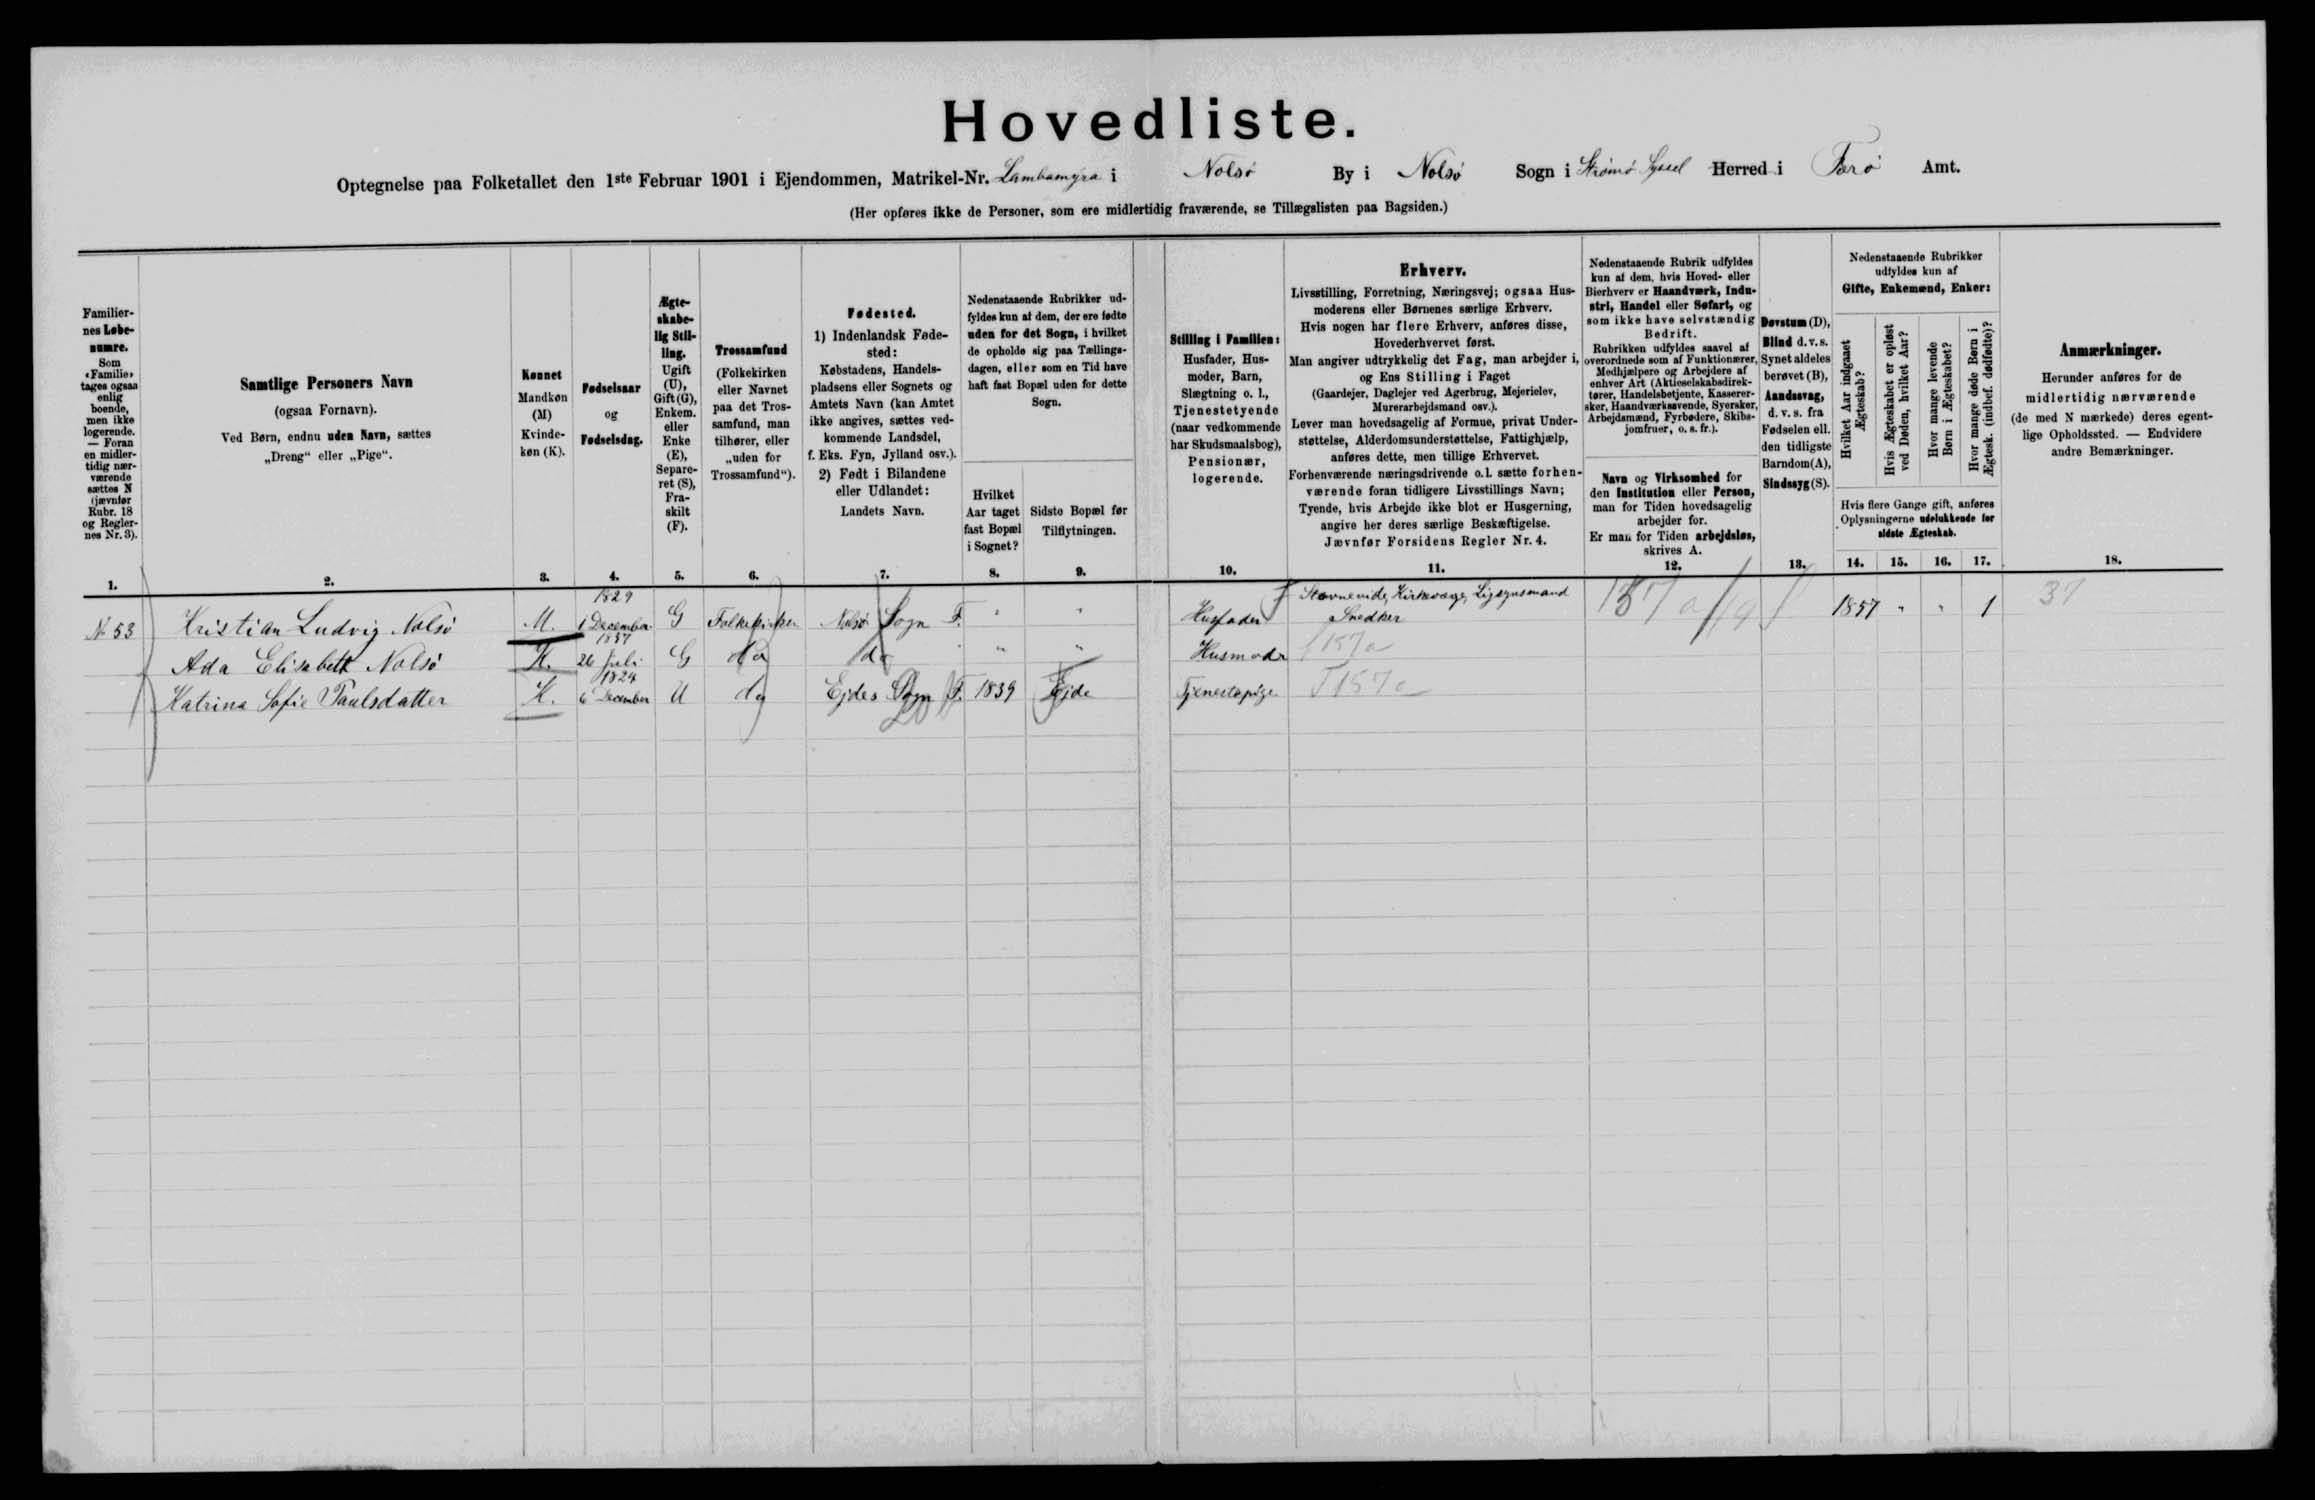 Hovedliste.
Optegnelse paa Folketallet den 1ste Februar 1901 i Ejendommen, Matrikel-Nr. Lambamýra i Nolsö By i Nolsö Sogn i Strömö Syssel Herred i Færö Amt.
(Her opføres ikke de Personer, som ere midlertidig fraværende, se Tillægslisten paa Bagsiden.)
Familier-
nes Løbe-
numre.
Som
«Familie»
tages ogsaa
enlig
boende,
men ikke
logerende.
— Foran
en midler-
tidig nær-
værende
sættes N
(jævnfør
Rubr. 18
og Regler-
nes Nr. 3).
Samtlige Personers Navn
(ogsaa Fornavn).
Ved Børn, endnu uden Navn, sættes
„Dreng“ eller „Pige“.
Kønnet
Mandkøn
(M)
Kvinde-
køn (K).
Fødselsaar
og
Fødselsdag.
Ægte-
skabe-
lig Stil-
ling.
Ugift
(U),
Gift (G),
Enkem.
eller
Enke
(E),
Separe-
ret (S),
Fra-
skilt
(F).
Trossamfund
(Folkekirken
eller Navnet
paa det Tros-
samfund, man
tilhører, eller
„uden for
Trossamfund“).
Fødested.
1) Indenlandsk Føde-
sted:
Købstadens, Handels-
pladsens eller Sognets og
Amtets Navn (kan Amtet
ikke angives, sættes ved-
kommende Landsdel,
f. Eks. Fyn, Jylland osv.).
2) Født i Bilandene
eller Udlandet:
Landets Navn.
Nedenstaaende Rubrikker ud-
fyldes kun af dem, der ere fødte
uden for det Sogn, i hvilket
de opholde sig paa Tællings-
dagen, eller som en Tid have
haft fast Bopæl uden for dette
Sogn.
Hvilket
Aar taget
fast Bopæl
i Sognet?
Sidste Bopæl før
Tilflytningen.
Stilling i Familien:
Husfader, Hus-
moder, Barn,
Slægtning o. l.,
Tjenestetyende
(naar vedkommende
har Skudsmaalsbog),
Pensionær,
logerende.
Erhverv.
Livsstilling, Forretning, Næringsvej; ogsaa Hus-
moderens eller Børnenes særlige Erhverv.
Hvis nogen har flere Erhverv, anføres disse,
Hovederhvervet først.
Man angiver udtrykkelig det Fag, man arbejder i,
og Ens Stilling i Faget
(Gaardejer, Daglejer ved Agerbrug, Mejerielev,
Murerarbejdsmand osv.).
Lever man hovedsagelig af Formue, privat Under-
støttelse, Alderdomsunderstøttelse, Fattighjælp,
anføres dette, men tillige Erhvervet.
Forhenværende næringsdrivende o. l. sætte forhen-
værende foran tidligere Livsstillings Navn;
Tyende, hvis Arbejde ikke blot er Husgerning,
angive her deres særlige Beskæftigelse.
Jævnfør Forsidens Regler Nr. 4.
Nedenstaaende Rubrik udfyldes
kun af dem, hvis Hoved- eller
Bierhverv er Haandværk, Indu-
stri, Handel eller Søfart, og
som ikke have selvstændig
Bedrift.
Rubrikken udfyldes saavel af
overordnede som af Funktionærer,
Medhjælpere og Arbejdere af
enhver Art (Aktieselskabsdirek-
tører, Handelsbetjente, Kasserer-
sker, Haandværkssvende, Syersker,
Arbejdsmænd, Fyrbødere, Skibs-
jomfruer, o. s. fr.).
Navn og Virksomhed for
den Institution eller Person,
man for Tiden hovedsagelig
arbejder for.
Er man for Tiden arbejdsløs,
skrives A.
Døvstum (D),
Blind d. v. s.
Synet aldeles
berøvet (B),
Aandssvag,
d. v. s. fra
Fødselen ell.
den tidligste
Barndom (A),
Sindssyg (S).
Nedenstaaende Rubrikker
udfyldes kun af
Gifte, Enkemænd, Enker:
Hvilket Aar indgaaet
Ægteskab?
Hvis Ægteskabet er opløst
ved Døden, hvilket Aar?
Hvor mange levende
Børn i Ægteskabet?
Hvor mange døde Børn i
Ægtesk. (indbef. dødfødte)?
Hvis flere Gange gift, anføres
Oplysningerne udelukkende for
sidste Ægteskab.
Anmærkninger.
Herunder anføres for de
midlertidig nærværende
(de med N mærkede) deres egent-
lige Opholdssted. — Endvidere
andre Bemærkninger.
1. 2. 3. 4. 5. 6. 7. 8. 9. 10. 11. 12. 13. 14. 15. 16. 17. 18.
№ 53 Kristian Ludvig Nolsö M. 1829 1 December G Folkekirken Nolsö Sogn F. " " Husfader Stævnevidne, Kirkeværge, Ligsynsmand Snedker 1857 " " 1 37
Ada Elisabeth Nolsö K. 1837 26 Juli G do do " " Husmoder 157a
Katrina Sofie Paulsdatter K. 1824 6 December U do Ejdes Sogn F. 1839 Ejde Tjenestepige T 157a